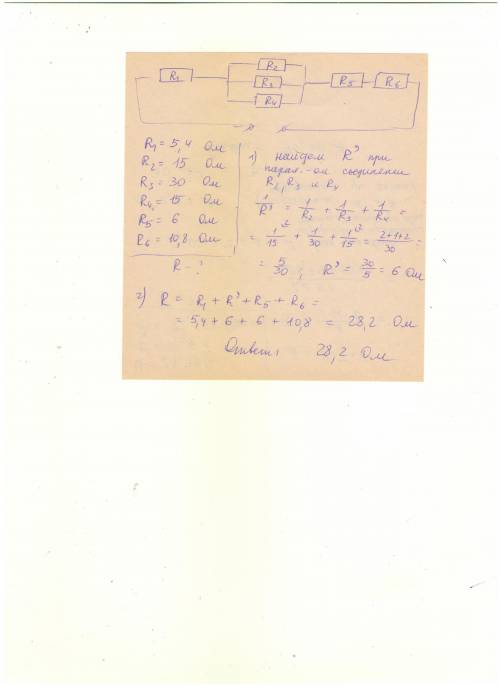 R1
R2
R3
R4
R5
R6
R1 = 5,4 Ом
R2 = 15 Ом
R3 = 30 Ом
R4 = 15 Ом
R5 = 6 Ом
R6 = 10,8 Ом
R - ?
1) найдём R' при
парал.-ом соединении
R2, R3 и R4
1/R' = 1/R2 + 1/R3 + 1/R4 =
= 1/15 + 1/30 + 1/15 = 2+1+2/30 =
= 5/30 ; R' = 30/5 = 6 Ом
2) R = R1 + R' + R5 + R6 =
= 5,4 + 6 + 6 + 10,8 = 28,2 Ом
Ответ: 28,2 Ом